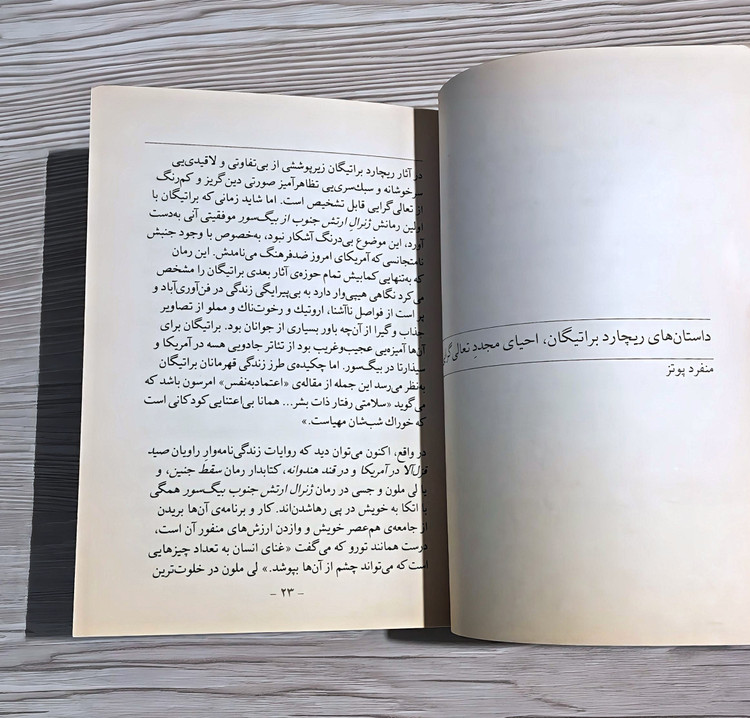 داستان‌های ریچارد براتیگان، احیای مجددِ تعالی‌گرایی
منفرد پوتز
در آثار ریچارد براتیگان زیرپوششی از بی‌تفاوتی و لاقیدی‌یی
سرخوشانه و سبك‌سری‌یی تظاهرآمیز صورتی دین‌گریز و کم‌رنگ
از تعالی‌گرایی قابل تشخیص است. اما شاید زمانی‌که براتیگان با
اولین رمانش ژنرالِ ارتش جنوب از بیگ‌سور موفقیتی آنی به‌دست
آورد، این موضوع بی‌درنگ آشکار نبود، به‌خصوص با وجود جنبش
نامتجانسی که آمریکای امروز ضدفرهنگ می‌نامدش. این رمان
که به‌تنهایی کمابیش تمام حوزه‌ی آثار بعدی براتیگان را مشخص
می‌کرد نگاهی هیپی‌وار دارد به بی‌پیرایگی زندگی در فن‌آوری‌آباد و
پر است از فواصل ناآشنا، اروتیك و رخوت‌ناك و مملو از تصاویر
جذاب و گیرا از آن‌چه باور بسیاری از جوانان بود. براتیگان برای
آن‌ها آمیزه‌یی عجیب‌وغریب بود از تئاتر جادویی هسه در آمریکا و
سیذارتا در بیگ‌سور. اما چکیده‌ی طرز زندگی قهرمانان براتیگان
به‌نظر می‌رسد این جمله از مقاله‌ی «اعتمادبه‌نفس» امرسون باشد که
می‌گوید «سلامتی رفتار ذات بشر... همانا بی‌اعتنایی کودکانی است
که خوراك شب‌شان مهیاست.»
در واقع، اکنون می‌توان دید که روایات زندگی‌نامه‌وارِ راویان صید
قزل‌آلا در آمریکا و در قند هندوانه، کتابدار رمان سقط جنین، و
یا لی ملون و جسی در رمان ژنرال ارتش جنوب بیگ‌سور همگی
با اتکا به خویش در پی رهاشدن‌اند. کار و برنامه‌ی آن‌ها بریدن
از جامعه‌ی هم‌عصر خویش و وازدن ارزش‌های منفور آن است،
درست همانند تورو که می‌گفت «غنای انسان به تعداد چیزهایی
است‌که می‌تواند چشم از آن‌ها بپوشد.» لی ملون در خلوت‌ترین
- ۲۳ -